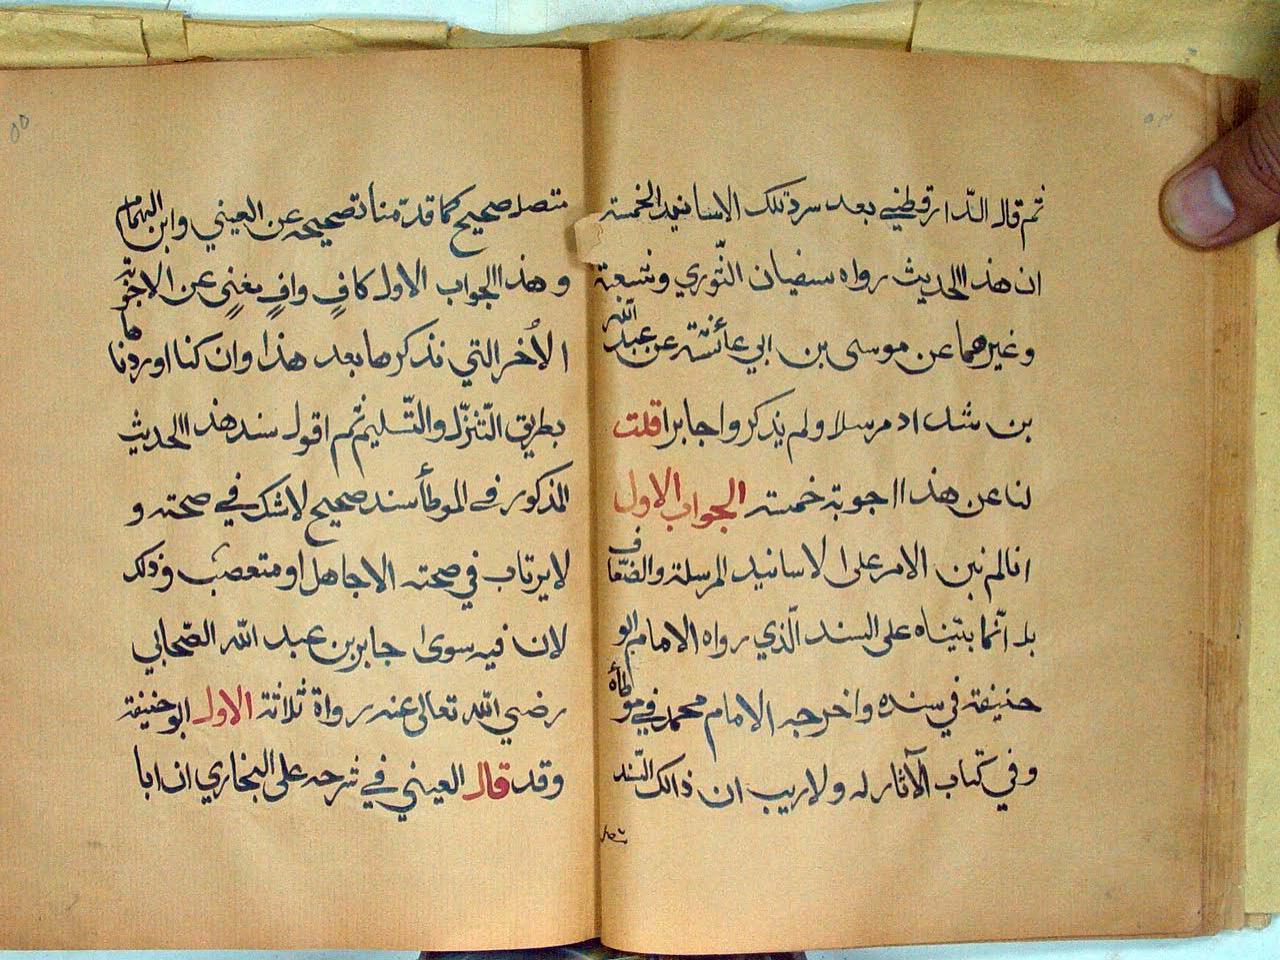 ٥٤
ثم قال الدّارقطني بعد سرد تلك الاسانيد الخمسة
ان هذا الحديث رواه سفيان الثّوري وشعبة
وغيرهما عن موسى بن ابي عائشة عن عبد الله
بن شداد مرسلا ولم يذكروا جابرا قلت
لنا عن هذا اجوبة خمسة الجواب الاول
انا لم نبن الامر على الاسانيد المرسلة والضّعاف
بل انّما بنيناه على السند الّذي رواه الامام ابو
حنيفة في سنده واخرجه الامام محمد في موطأه
وفي كتاب الآثار له ولا ريب ان ذالك السّند
متصل
٥٥
متصل صحيح كما قدمنا تصحيحه عن العيني وابن الهمام
وهذا الجواب الاول كافٍ وافٍ مغنٍي عن الاجوبة
الأخر التي نذكرها بعد هذا وان كنا اوردناها
بطريق التّنزّل والتّسليم ثم اقول سند هذا الحديث
المذكور في الموطأ سند صحيح لا شك في صحته و
لا يرتاب في صحته الا جاهل او متعصب وذلك
لان فيه سوى جابر بن عبد الله الصّحابي
رضي الله تعالى عنه رواة ثلاثة الاول ابو حنيفة
وقد قال العيني في شرحه على البخاري ان ابا